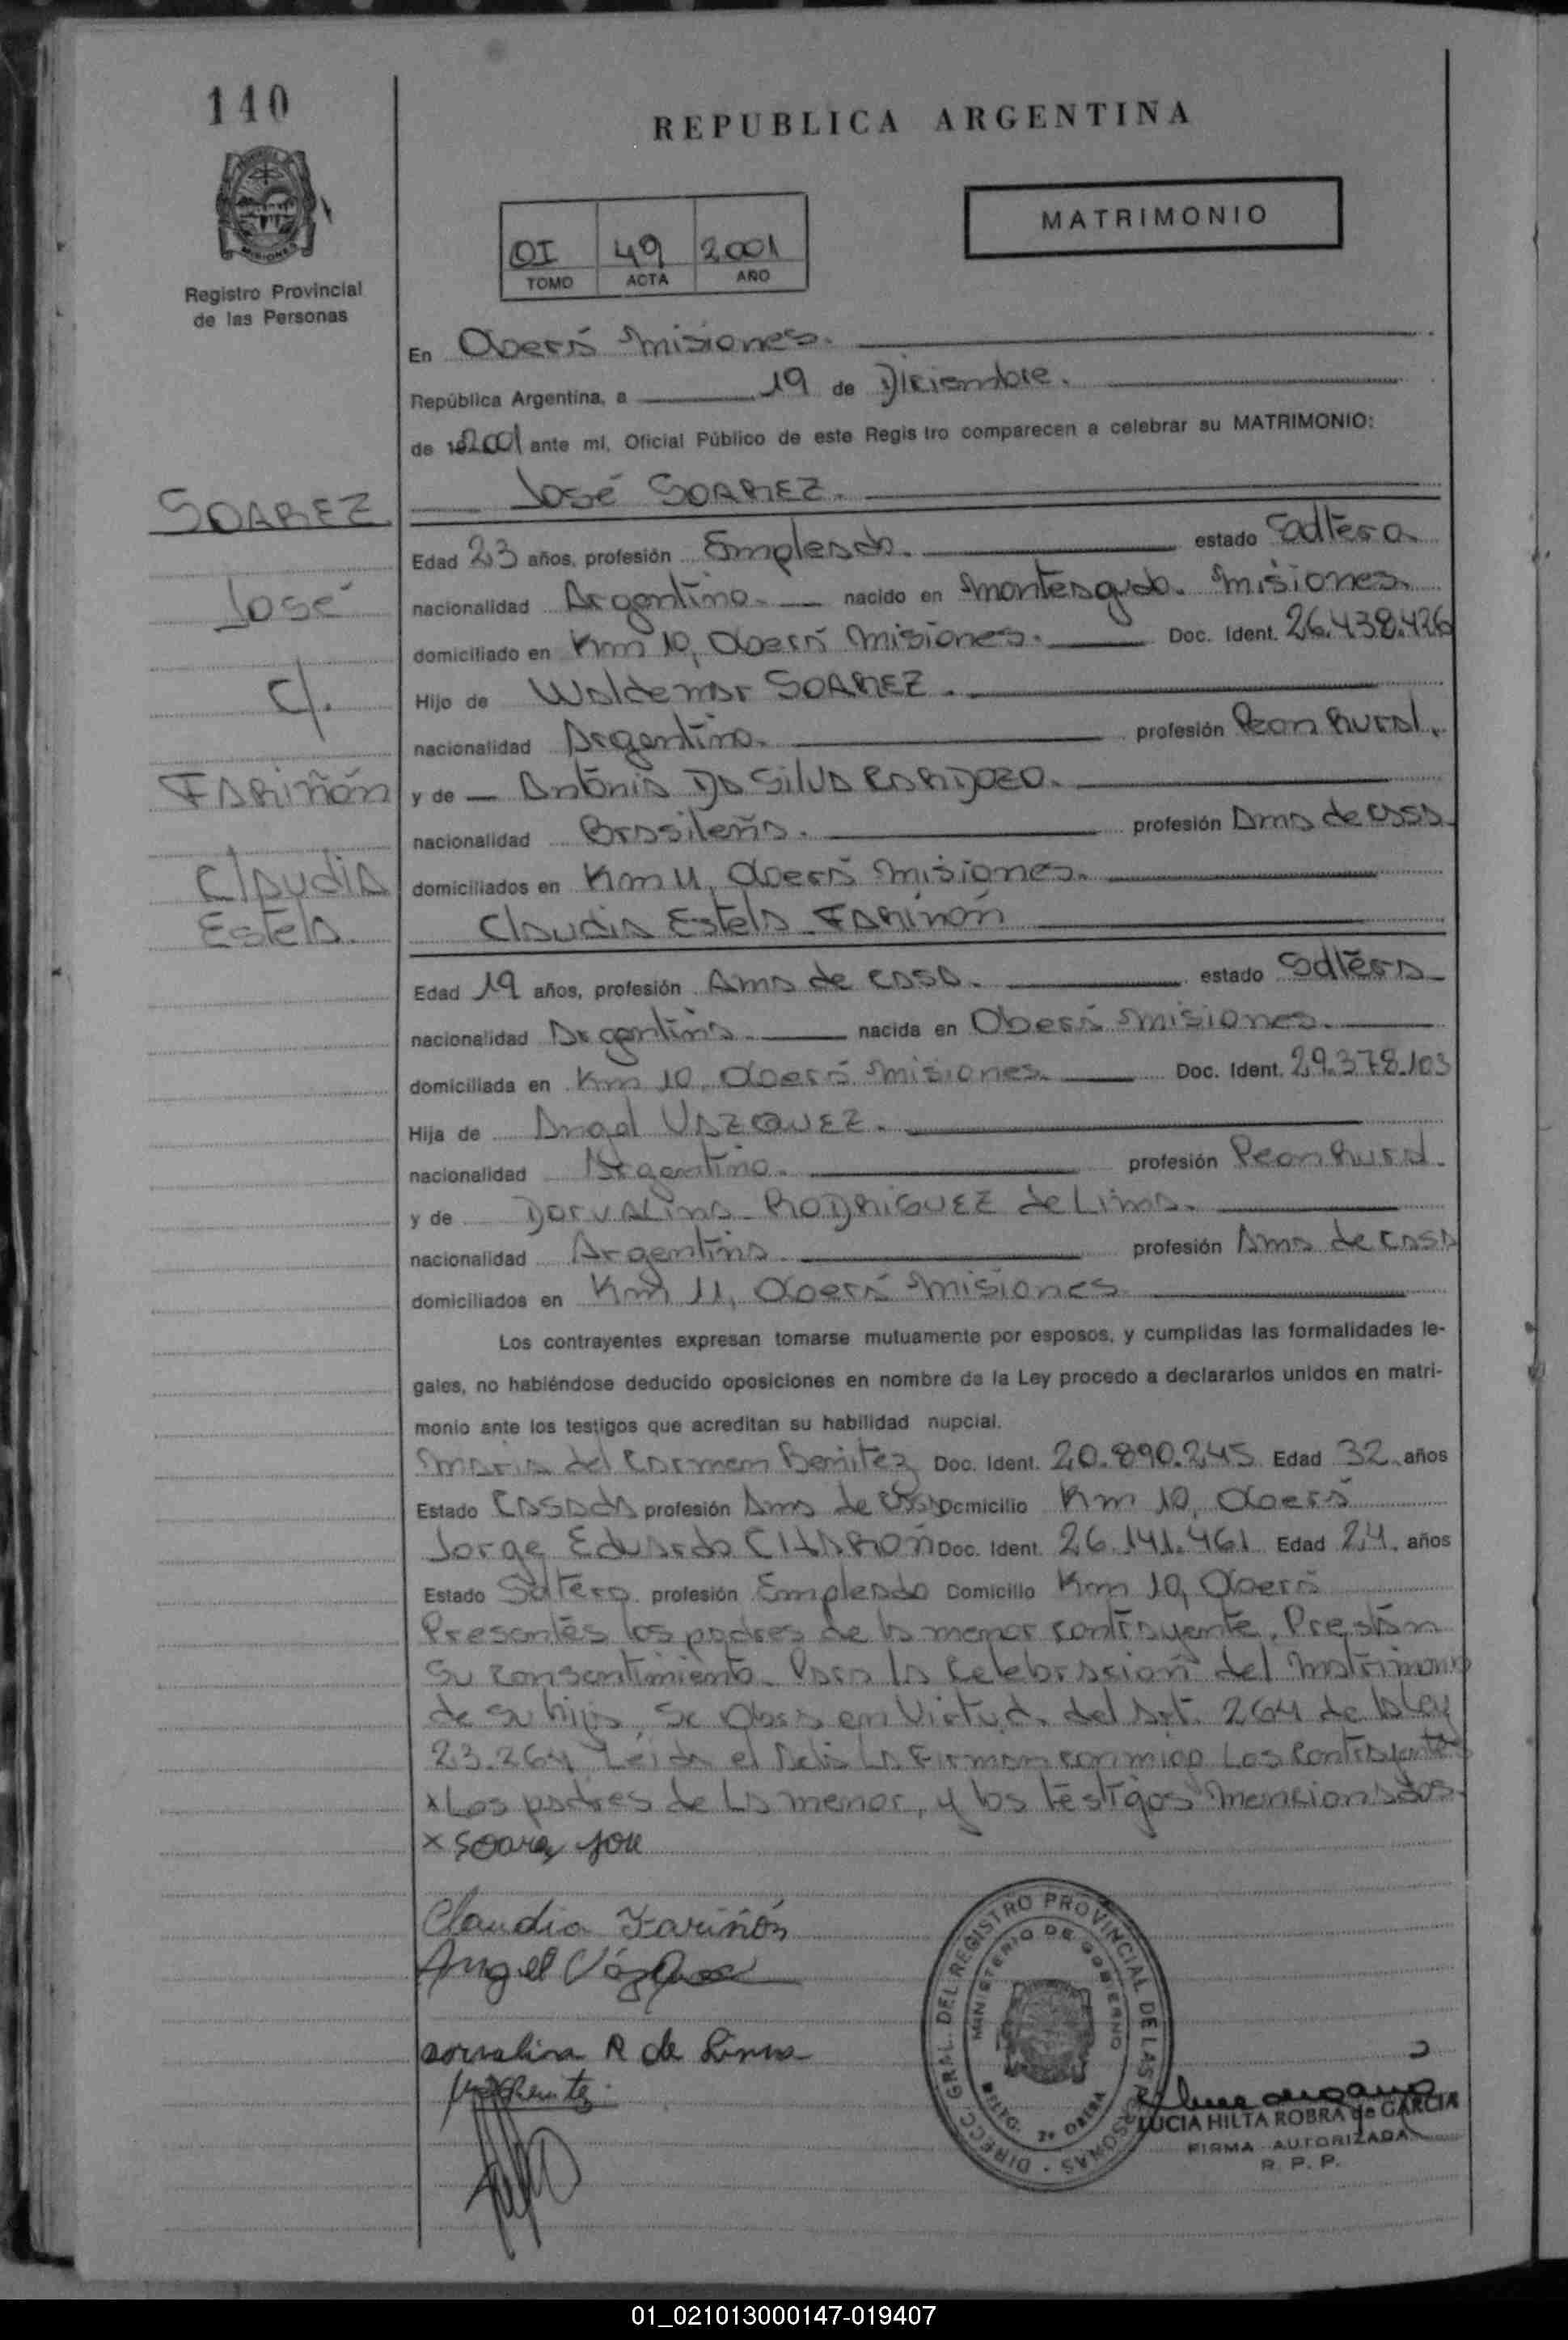 110
REPUBLICA ARGENTINA
MATRIMONIO
OI 49 2001
TOMO ACTA AÑO
Registro Provincial
de las Personas
En Oberá Misiones.
República Argentina, a 19 de Diciembre.
de 2001 ante mí, Oficial Público de este Registro comparecen a celebrar su MATRIMONIO:
José SOAREZ.
SOAREZ
José
c/.
FARIÑÓN
Claudia
Estela
Edad 23 años, profesión Empleado. estado Soltero
nacionalidad Argentino. nacido en Monteagudo. Misiones.
domiciliado en Km 10, Oberá Misiones. Doc. Ident. 26.438.426
Hijo de Waldemar SOAREZ.
nacionalidad Argentino. profesión Peon Rural.
y de Antonia Da Silva CARDOZO.
nacionalidad Brasileña. profesión Ama de casa
domiciliados en Km 11, Oberá Misiones.
Claudia Estela FARIÑÓN
Edad 19 años, profesión Ama de casa. estado Soltera
nacionalidad Argentina nacida en Oberá Misiones.
domiciliada en Km 10, Oberá Misiones. Doc. Ident. 29.378.103
Hija de Angel VAZQUEZ.
nacionalidad Argentino. profesión Peon Rural.
y de Dorvalina RODRIGUEZ de Lima.
nacionalidad Argentina profesión Ama de casa
domiciliados en Km 11, Oberá Misiones
Los contrayentes expresan tomarse mutuamente por esposos, y cumplidas las formalidades le-
gales, no habiéndose deducido oposiciones en nombre de la Ley procedo a declararlos unidos en matri-
monio ante los testigos que acreditan su habilidad nupcial.
Maria del Carmen Benitez Doc. Ident. 20.890.245 Edad 32 años
Estado Casada profesión Ama de casa Domicilio Km 10, Oberá
Jorge Eduardo CHAROÑ Doc. Ident. 26.141.461 Edad 24 años
Estado Soltero profesión Empleado Domicilio Km 10, Oberá
Presentes los padres de la menor contrayente. Prestan
su consentimiento Para la Celebracion del matrimonio
de su hija, Se Obra en Virtud del Art. 264 de la ley
23.264 Leida el Acta La Firman conmigo Los Contrayentes
x Los padres de La menor, y los testigos mencionados.
x Soarez José
Claudia Fariñón
Angel Vázquez
Dorvalina R de Lima
Benitez
DIRECC. GRAL. DEL REGISTRO PROVINCIAL DE LAS PERSONAS
MINISTERIO DE GOBIERNO
2ª OBERA
LUCIA HILTA ROBRA de GARCIA
FIRMA AUTORIZADA
R. P. P.
01_021013000147-019407